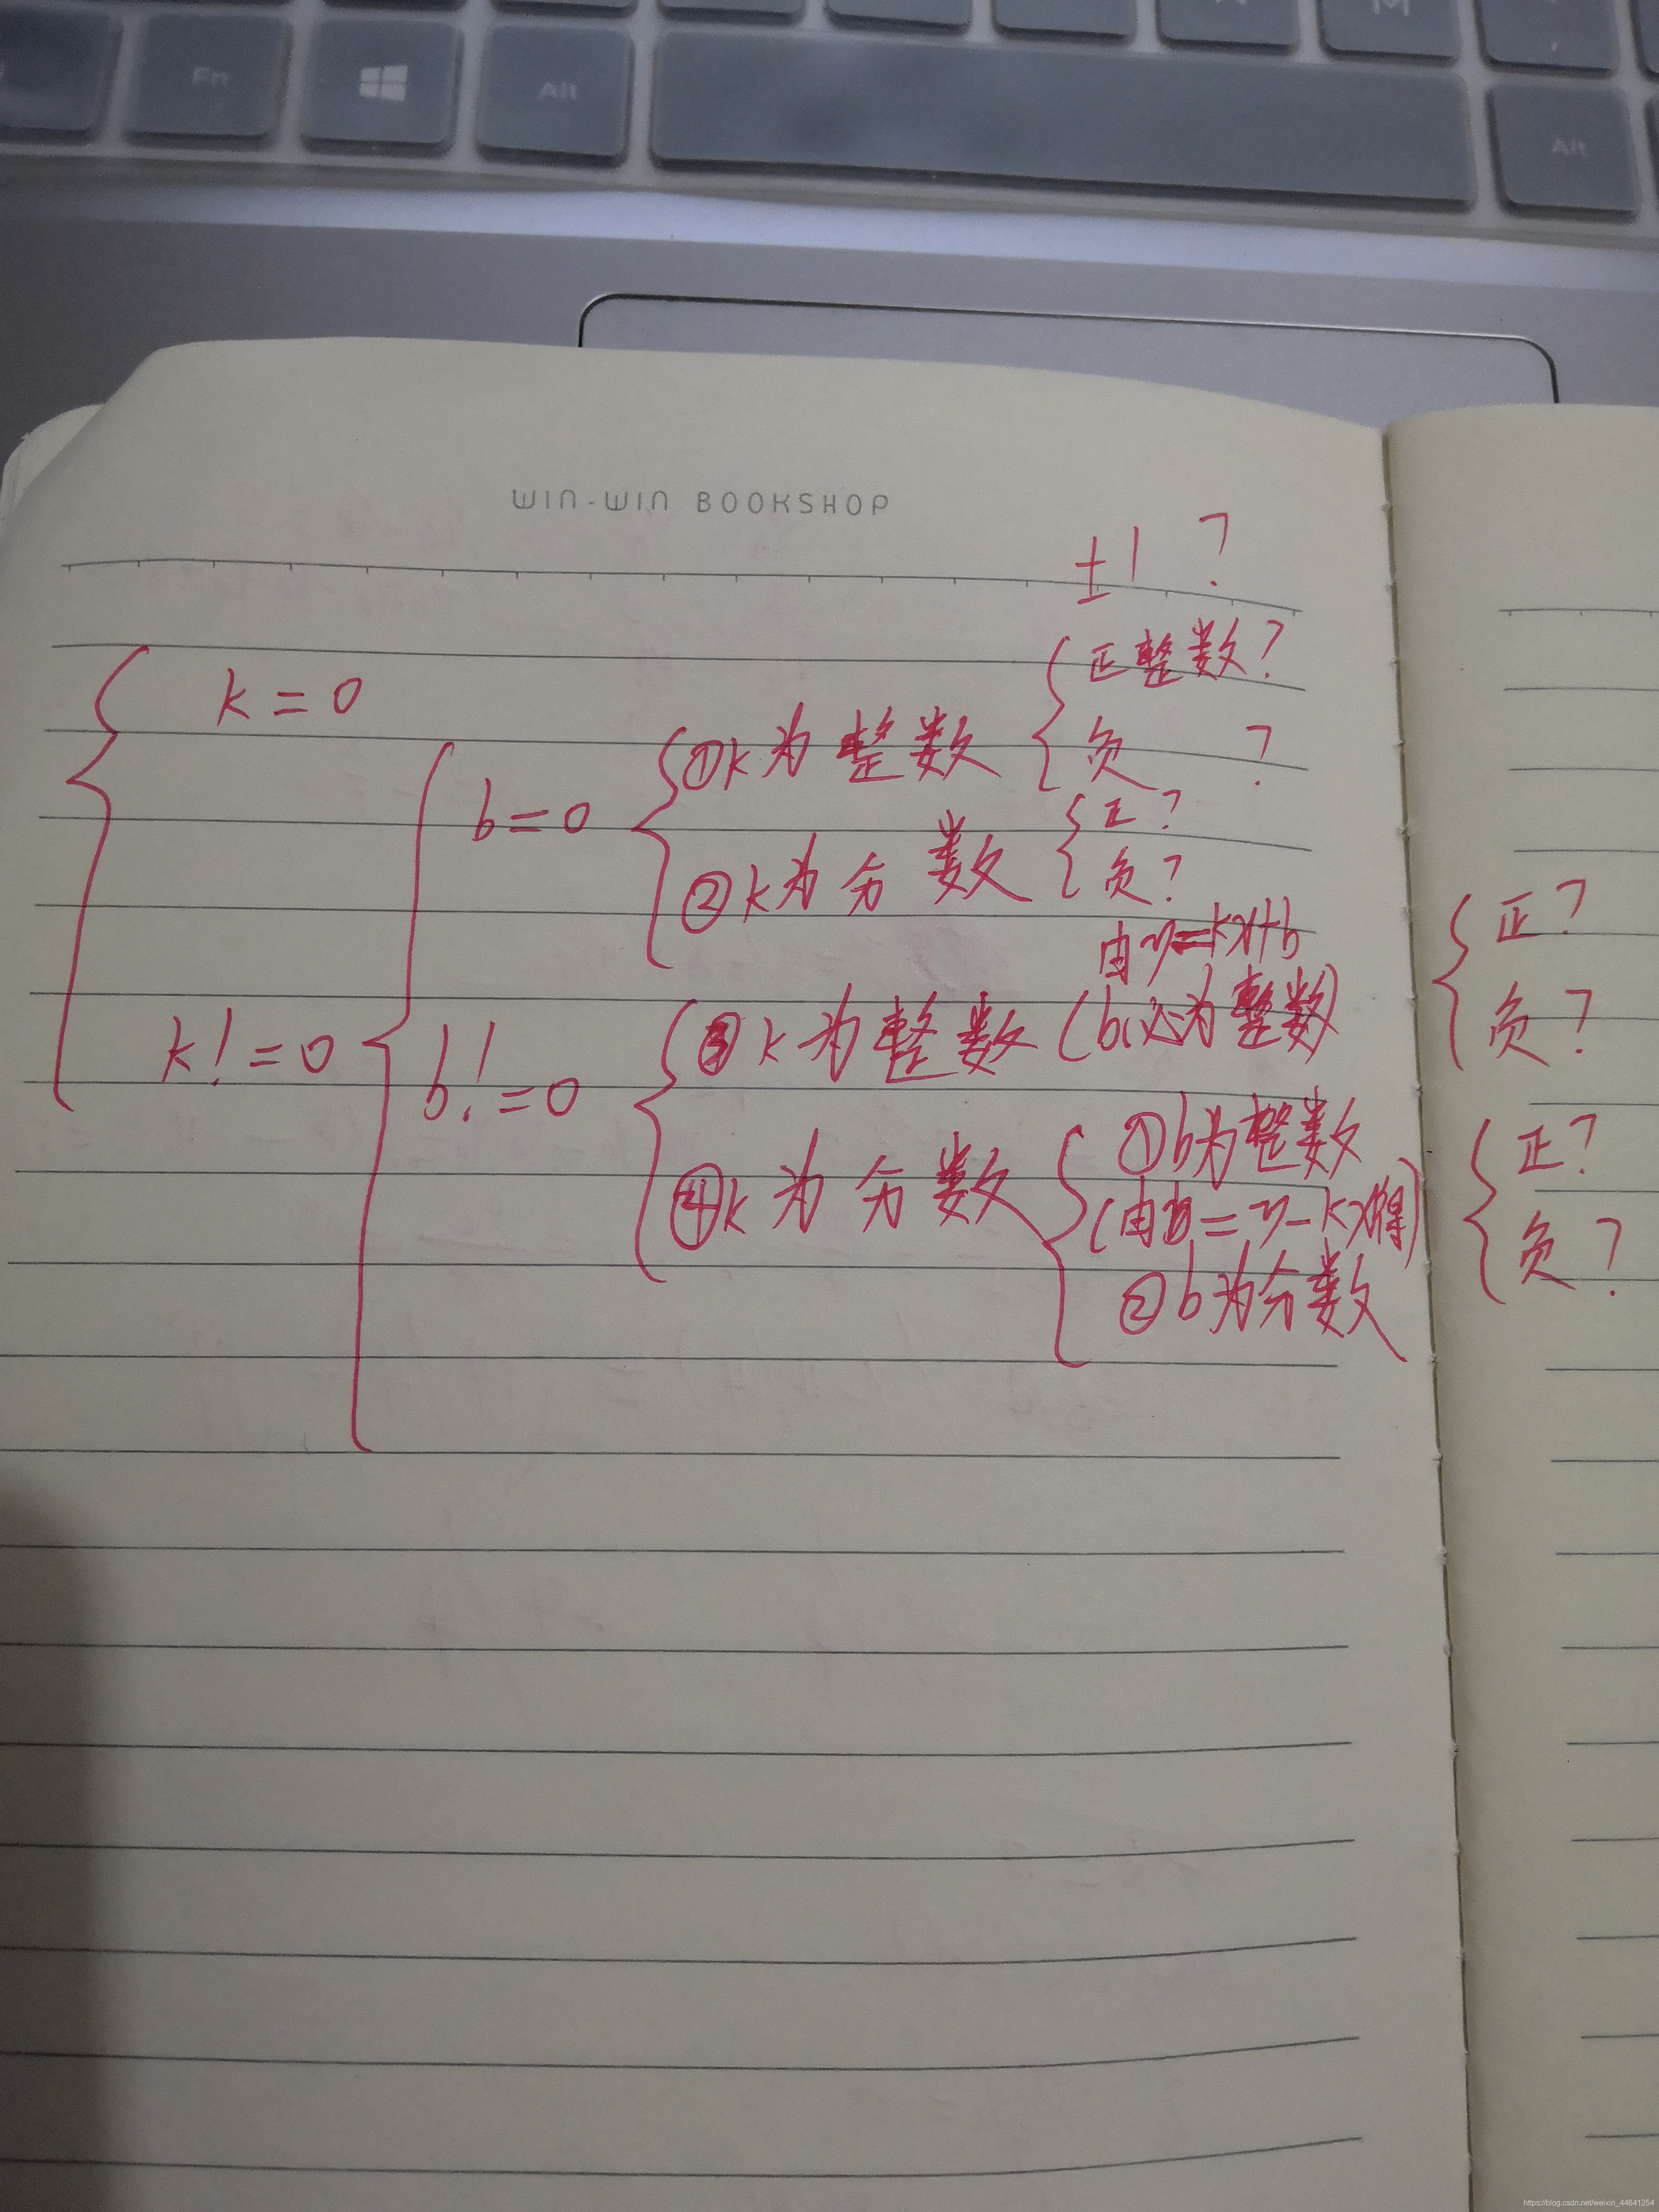 Fn
Alt
Alt
M
WIN-WIN BOOKSHOP
±1 ?
k=0
b=0
①k为整数
正整数?
负 ?
②k为分数
正?
负?
k!=0
b!=0
由y=kx+b
③k为整数(b必为整数)
正?
负?
④k为分数
①b为整数
(由b=y-kx得)
②b为分数
正?
负?
https://blog.csdn.net/weixin_44641254